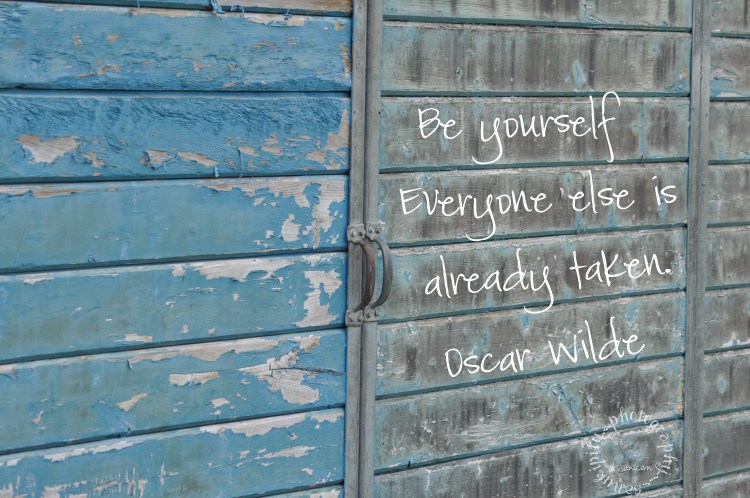 Be yourself
Everyone else is
already taken.
Oscar Wilde